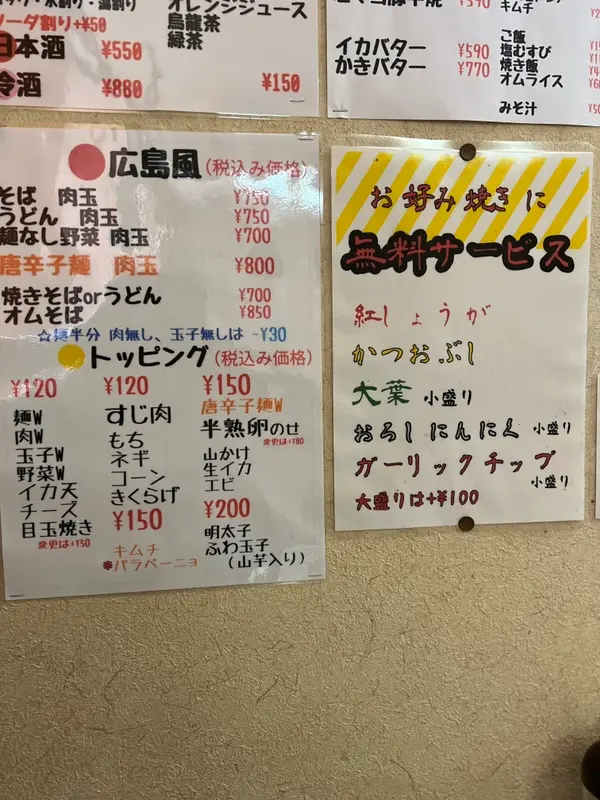 ソーダ割り+¥50
日本酒 ¥550
冷酒 ¥880
オレンジジュース
烏龍茶
緑茶
¥150
イカバター ¥590
かきバター ¥770
キムチ
ご飯
塩むすび
焼き飯
オムライス
みそ汁
広島風(税込み価格)
そば 肉玉 ¥750
うどん 肉玉 ¥750
麺なし野菜 肉玉 ¥700
唐辛子麺 肉玉 ¥800
焼きそばorうどん ¥700
オムそば ¥850
☆麺半分 肉無し、玉子無しは -¥30
トッピング(税込み価格)
¥120
麺W
肉W
玉子W
野菜W
イカ天
チーズ
目玉焼き
変更は+¥50
¥120
すじ肉
もち
ネギ
コーン
きくらげ
¥150
キムチ
パラペーニョ
¥150
唐辛子麺W
半熟卵のせ
変更は+¥80
山かけ
生イカ
エビ
¥200
明太子
ふわ玉子
(山芋入り)
お好み焼きに
無料サービス
紅しょうが
かつおぶし
大葉 小盛り
おろしにんにく 小盛り
ガーリックチップ
小盛り
大盛りは+¥100